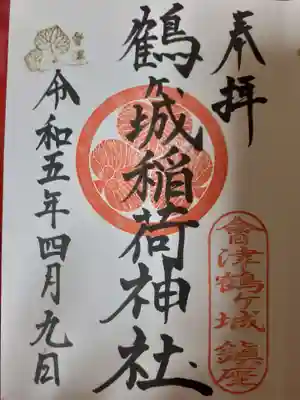 奉拝
鶴ヶ城稲荷神社
會津鶴ヶ城 鎮座
令和五年四月九日